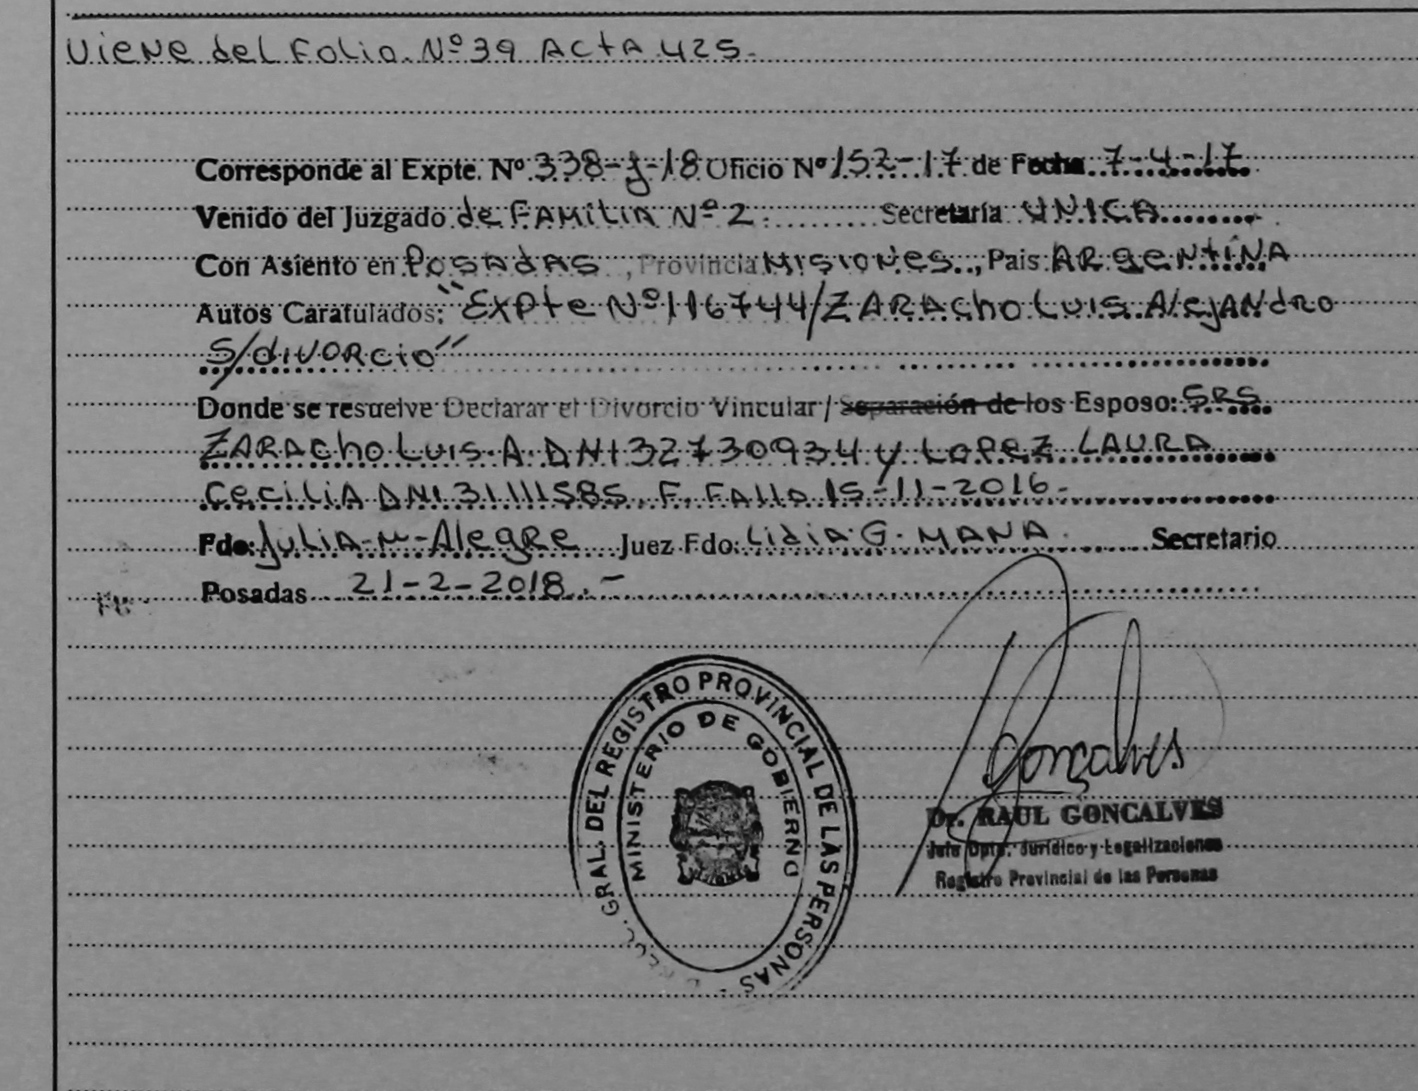 Viene del Folio Nº 39 Acta 425.
Corresponde al Expte. Nº 338-J-18 Oficio Nº 152-17 de Fecha 7-4-17
Venido del Juzgado de Familia Nº 2. Secretaría UNICA
Con Asiento en Posadas, Provincia Misiones, Pais Argentina
Autos Caratulados: "Expte Nº 116744/ZARACho Luis Alejandro
S/divorcio"
Donde se resuelve Declarar el Divorcio Vincular / Separación de los Esposo: SRS
ZARACho Luis A. DNI 32730934 y Lopez LAURA
Cecilia DNI 31111585. F. Fallo 15-11-2016.-
Fdo: Julia M. Alegre Juez Fdo: Lidia G. MANA. Secretario
Posadas 21-2-2018.-
GRAL. DEL REGISTRO PROVINCIAL DE LAS PERSONAS -
MINISTERIO DE GOBIERNO
Gonçalves
Dr. RAUL GONCALVES
Jefe Dpto. Jurídico y Legalizaciones
Registro Provincial de las Personas